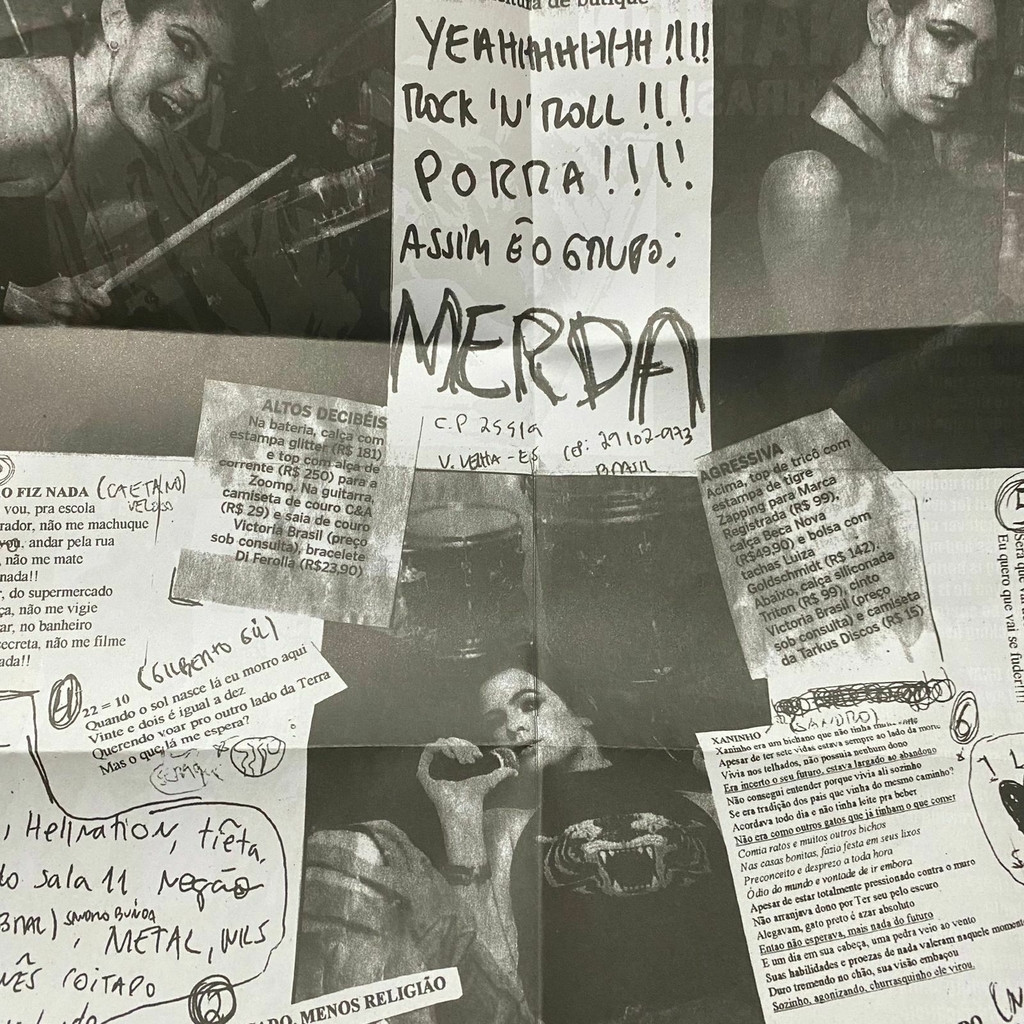 de butique
YEAHHHHHHHH!!!!
ROCK 'N' ROLL!!!
PORRA!!!!
ASSIM É O GRUPO:
MERDA
C.P 2551a
V. VELHA - ES
CEP: 29102-973
BRASIL
ALTOS DECIBÉIS
Na bateria, calça com
estampa glitter (R$ 181)
e top com alça de
corrente (R$ 250) para a
Zoomp. Na guitarra,
camiseta de couro C&A
(R$ 29) e saia de couro
Victoria Brasil (preço
sob consulta), bracelete
Di Ferolla (R$23,90)
AGRESSIVA
Acima, top de tricô com
estampa de tigre
Zapping para Marca
Registrada (R$ 99),
calça Beca Nova
(R$49,90) e bolsa com
tachas Luiza
Goldschmidt (R$ 142).
Abaixo, calça siliconada
Triton (R$ 99), cinto
Victoria Brasil (preço
sob consulta) e camiseta
da Tarkus Discos (R$ 15)
O FIZ NADA (CAETANO VELOSO)
vou, pra escola
rador, não me machuque
vou, andar pela rua
, não me mate
nada!!
r, do supermercado
ça, não me vigie
ar, no banheiro
secreta, não me filme
ada!!
4
22 = 10 (GILBERTO GIL)
Quando o sol nasce lá eu morro aqui
Vinte e dois é igual a dez
Querendo voar pro outro lado da Terra
Mas o que lá me espera?
, Hellnation, tiêta,
do sala 11 Negão
SANDRO BUNDA
, METAL, NILS
NÊS COITADO
2
ADO, MENOS RELIGIÃO
Será que
Eu quero que vai se fuder!!!!
XANINHO (SANDRO)
6
Xaninho era um bichano que não tinha muita sorte
Apesar de ter sete vidas estava sempre ao lado da morte
Vivia nos telhados, não possuia nenhum dono
Era incerto o seu futuro, estava largado ao abandono
Não consegui entender porque vivia ali sozinho
Se era tradição dos pais que vinha do mesmo caminho?
Acordava todo dia e não tinha leite pra beber
Não era como outros gatos que já tinham o que comer
Comia ratos e muitos outros bichos
Nas casas bonitas, fazia festa em seus lixos
Preconceito e desprezo a toda hora
Ódio do mundo e vontade de ir embora
Apesar de estar totalmente pressionado contra o muro
Não arranjava dono por Ter seu pelo escuro
Alegavam, gato preto é azar absoluto
Entao não esperava, mais nada do futuro
E um dia em sua cabeça, uma pedra veio ao vento
Suas habilidades e proezas de nada valeram naquele moment
Duro tremendo no chão, sua visão embaçou
Sozinho, agonizando, churrasquinho ele virou